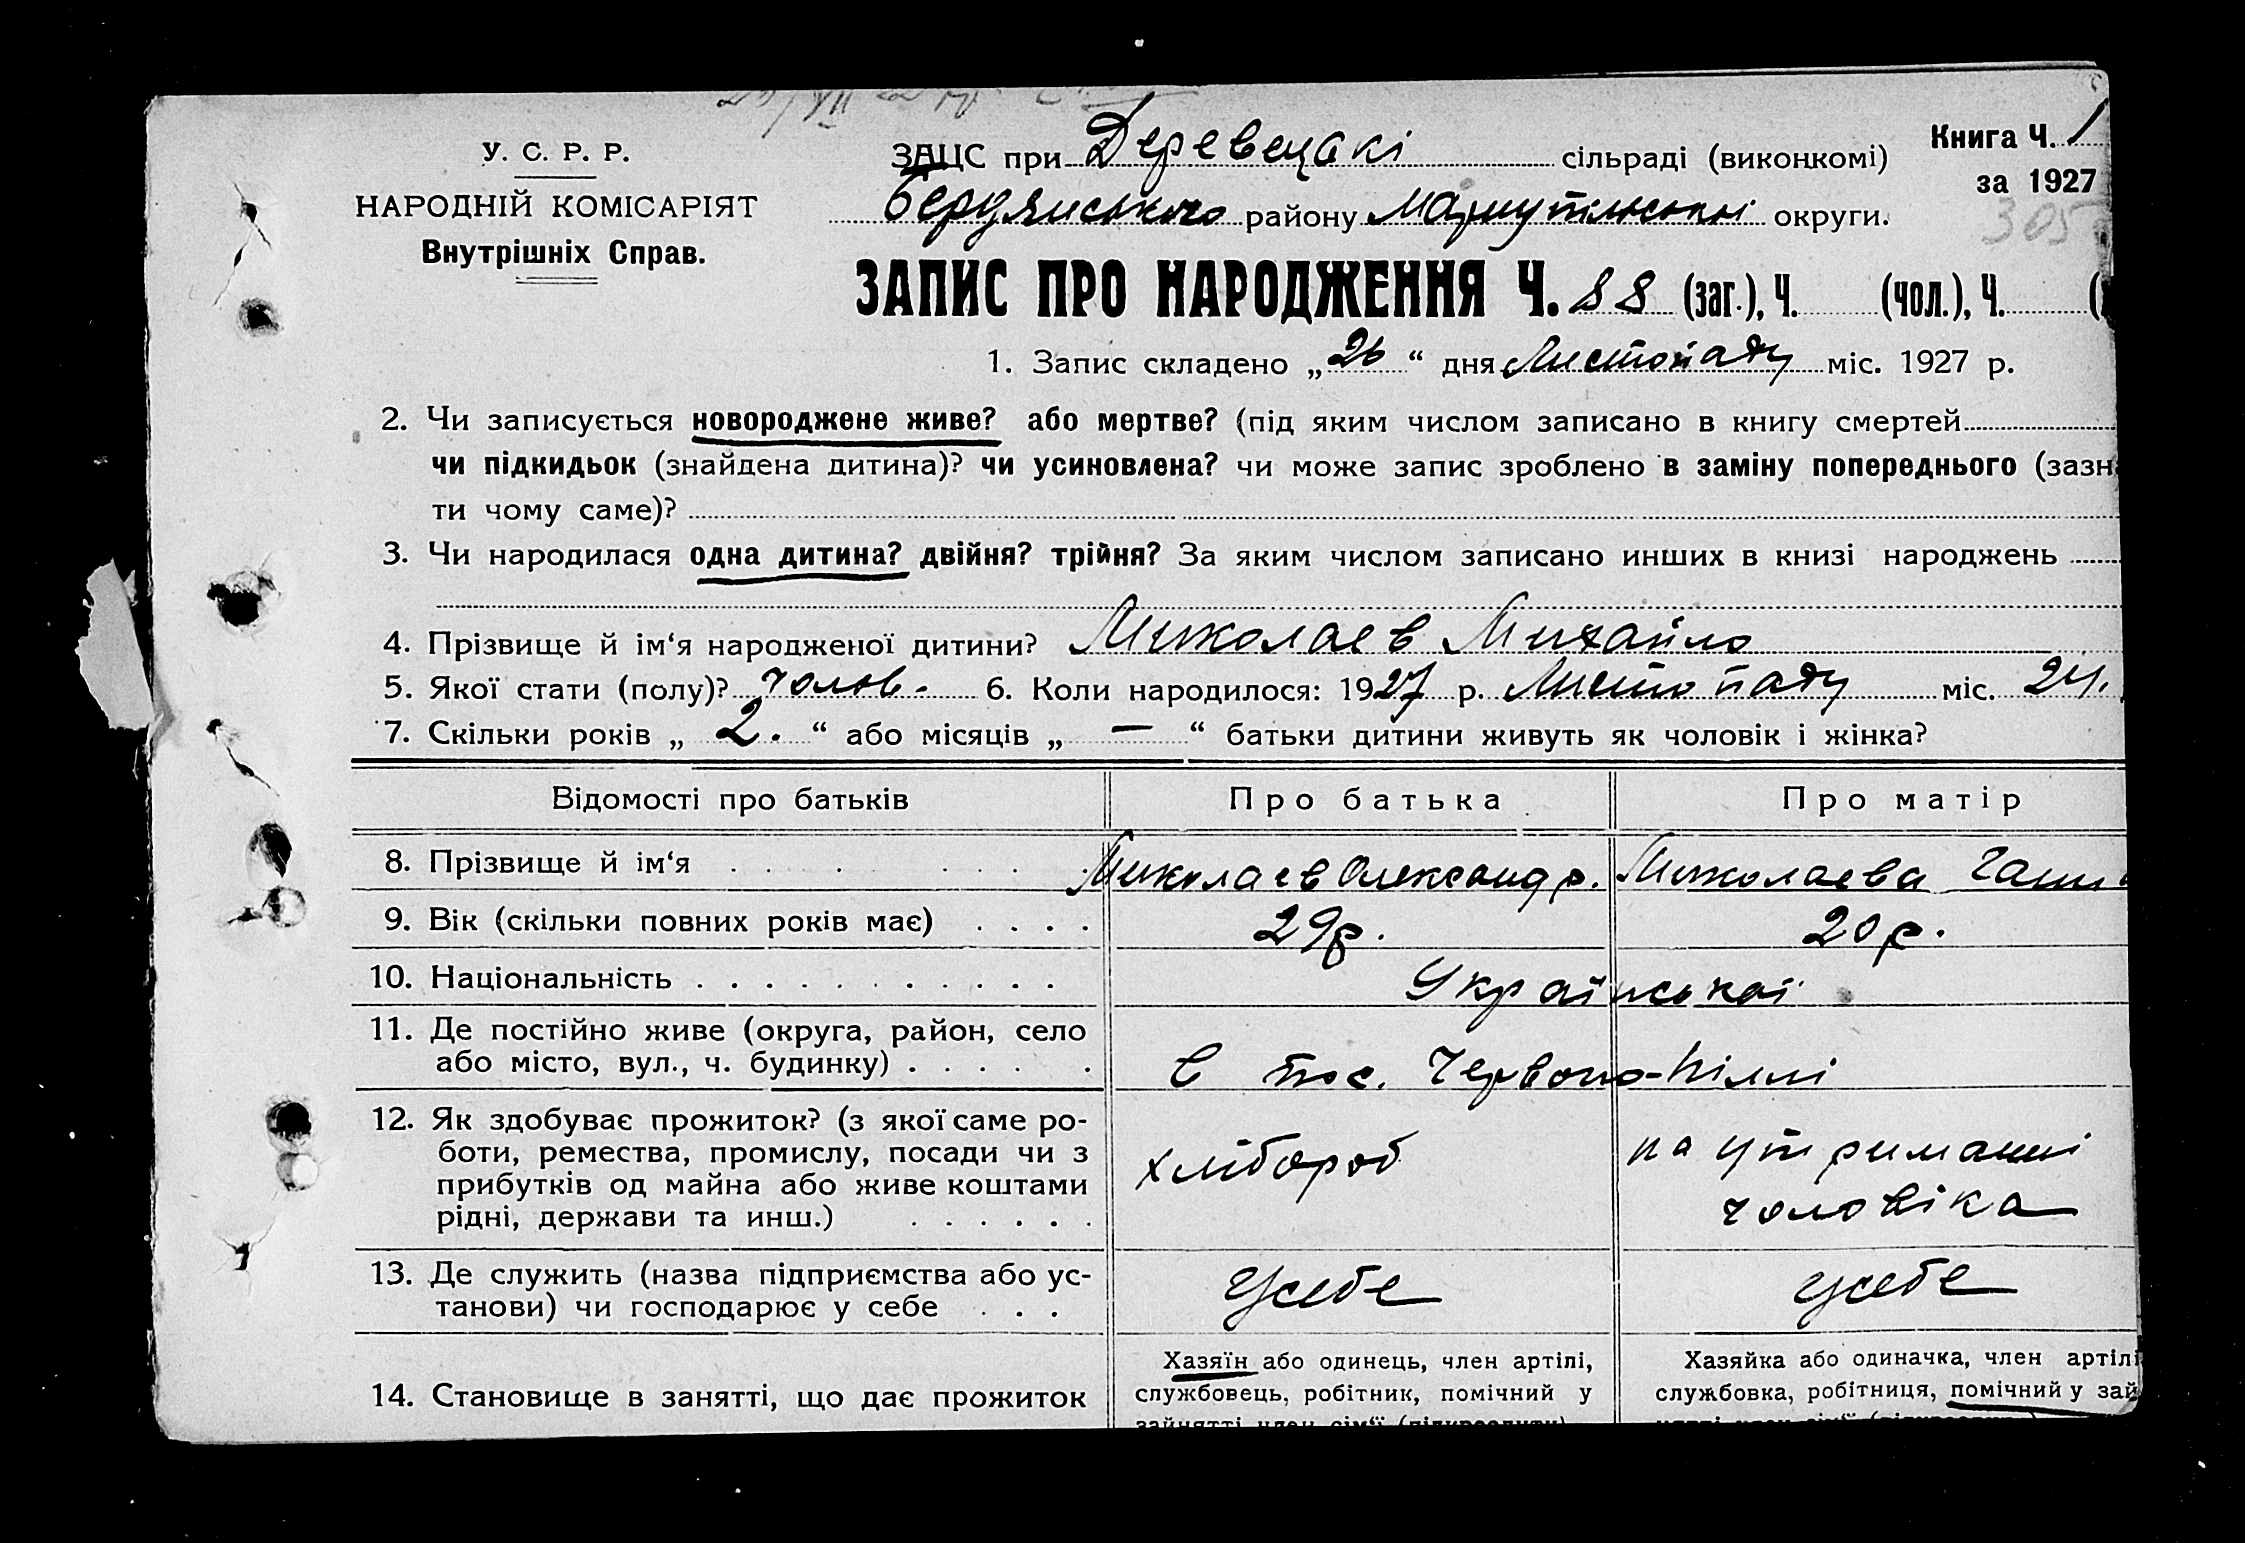 У. С. Р. Р.
НАРОДНІЙ КОМІСАРІЯТ
Внутрішніх Справ.
ЗАЦС при Деревецькі сільраді (виконкомі)
Бердянського району Маріупільської округи.
Книга Ч. 1
за 1927
305
ЗАПИС ПРО НАРОДЖЕННЯ Ч. 88 (заг.), Ч. (чол.), Ч. (
1. Запис складено „26“ дня Листопаду міс. 1927 р.
2. Чи записується новороджене живе? або мертве? (під яким числом записано в книгу смертей
чи підкидьок (знайдена дитина)? чи усиновлена? чи може запис зроблено в заміну попереднього (зазн
ти чому саме)?
3. Чи народилася одна дитина? двійня? трійня? За яким числом записано инших в книзі народжень
4. Прізвище й ім‘я народженої дитини? Миколаєв Михайло
5. Якої стати (полу)? чолов. 6. Коли народилося: 1927 р. Листопаду міс. 24.
7. Скільки років „2.“ або місяців „—“ батьки дитини живуть як чоловік і жінка?
Відомості про батьків Про батька Про матір
8. Прізвище й ім‘я Миколаєв Олександр. Миколаєва Ганна
9. Вік (скільки повних років має) 29р. 20р.
10. Національність Української
11. Де постійно живе (округа, район, село
або місто, вул., ч. будинку) в пос. Червоно-Піллі
12. Як здобуває прожиток? (з якої саме ро-
боти, ремества, промислу, посади чи з
прибутків од майна або живе коштами
рідні, держави та инш.)
хлібороб
на утриманні
чоловіка
13. Де служить (назва підприємства або ус-
танови) чи господарює у себе
усебе усебе
14. Становище в занятті, що дає прожиток
Хазяїн або одинець, член артілі,
службовець, робітник, помічний у
зайнятті член сім‘ї (підкреслити)
Хазяйка або одиначка, член артілі
службовка, робітниця, помічний у зай